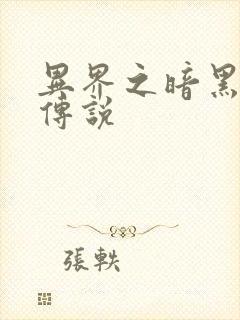 異界之暗黑
傳說
張軼